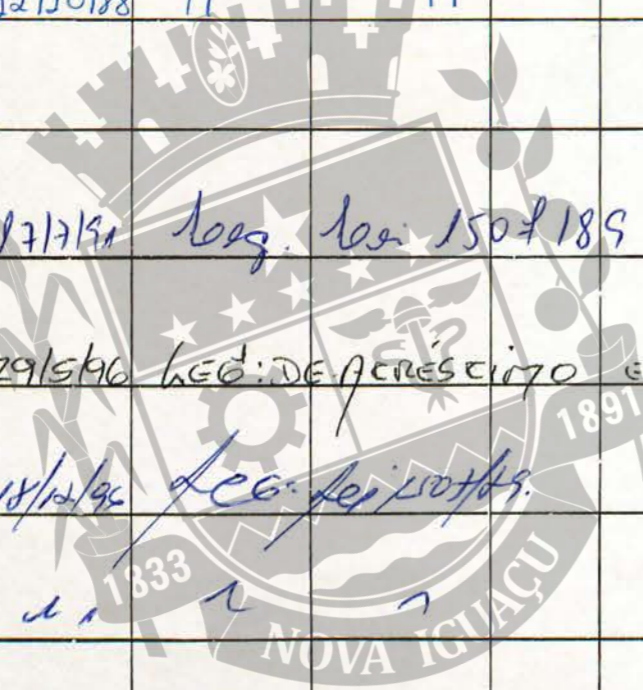 12/10/88 " "
17/7/91 Leg. Lei 1507/89
29/5/96 LEG: DE ACRÉSCIMO E
1891
18/12/96 LEG. Lei 1507/89.
1833
" " "
NOVA IGUAÇU